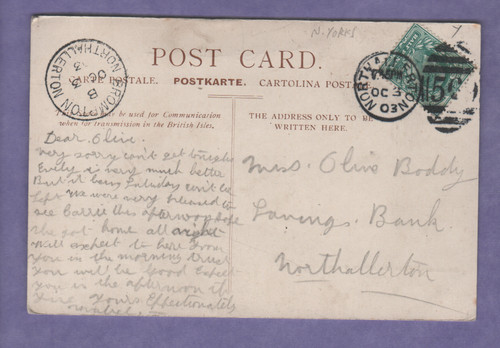 N. YORKS
Y
POST CARD.
CARTE POSTALE. POSTKARTE. CARTOLINA POSTALE
BROMPTON
B
OC 3
03
NORTHALLERTON
NORTHALLERTON
OC 3
03
This may be used for Communication
when for transmission in the British Isles.
THE ADDRESS ONLY TO BE
WRITTEN HERE.
Dear Olive.
Very sorry can't get tonight
Emily is very much better
But it being Saturday can't be
left We were very pleased to
see Carrie this afternoon hope
She got home all right
Will expect to here from
you in the morning trust
you will be good expect
you in the afternoon if
fine Yours Affectionately
Miss. Olive Boddy
Savings. Bank.
Northallerton